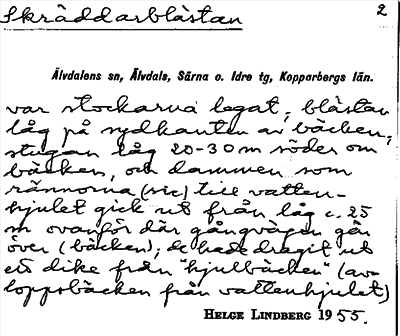 Skräddarblästan
2
Älvdalens sn, Älvdals, Särna o. Idre tg, Kopparbergs län.
var stockarna legat; blästan
låg på sydkanten av bäcken,
stugan låg 20-30 m söder om
bäcken, och dammen som
rännorna (sic) till vatten-
hjulet gick ut från låg c. 25
m ovanför där gångvägen går
över (bäcken); de hade dragit ut
ett dike från "hjulbäcken" (av-
loppsbäcken från vattenhjulet)
HELGE LINDBERG 1955.